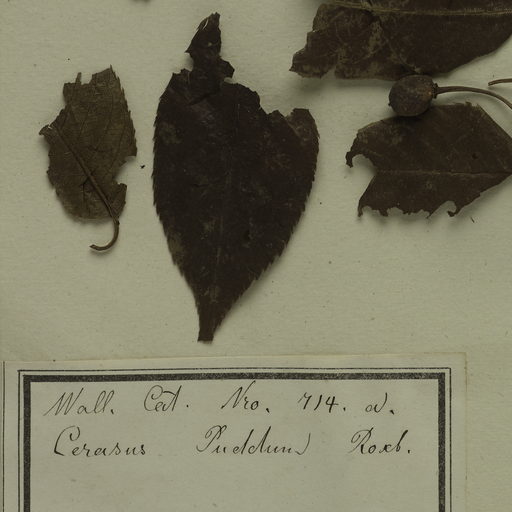 Wall. Cat. Nro. 714. a.
Cerasus Puddum Roxb.